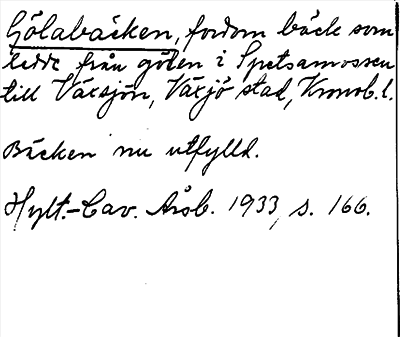 Gölabäcken, fordom bäck som
ledde från gölen i Spetsamossen
till Växsjön, Växjö stad, Kronob. l.
Bäcken nu utfylld.
Hylt.-Cav. Årsb. 1933, s. 166.